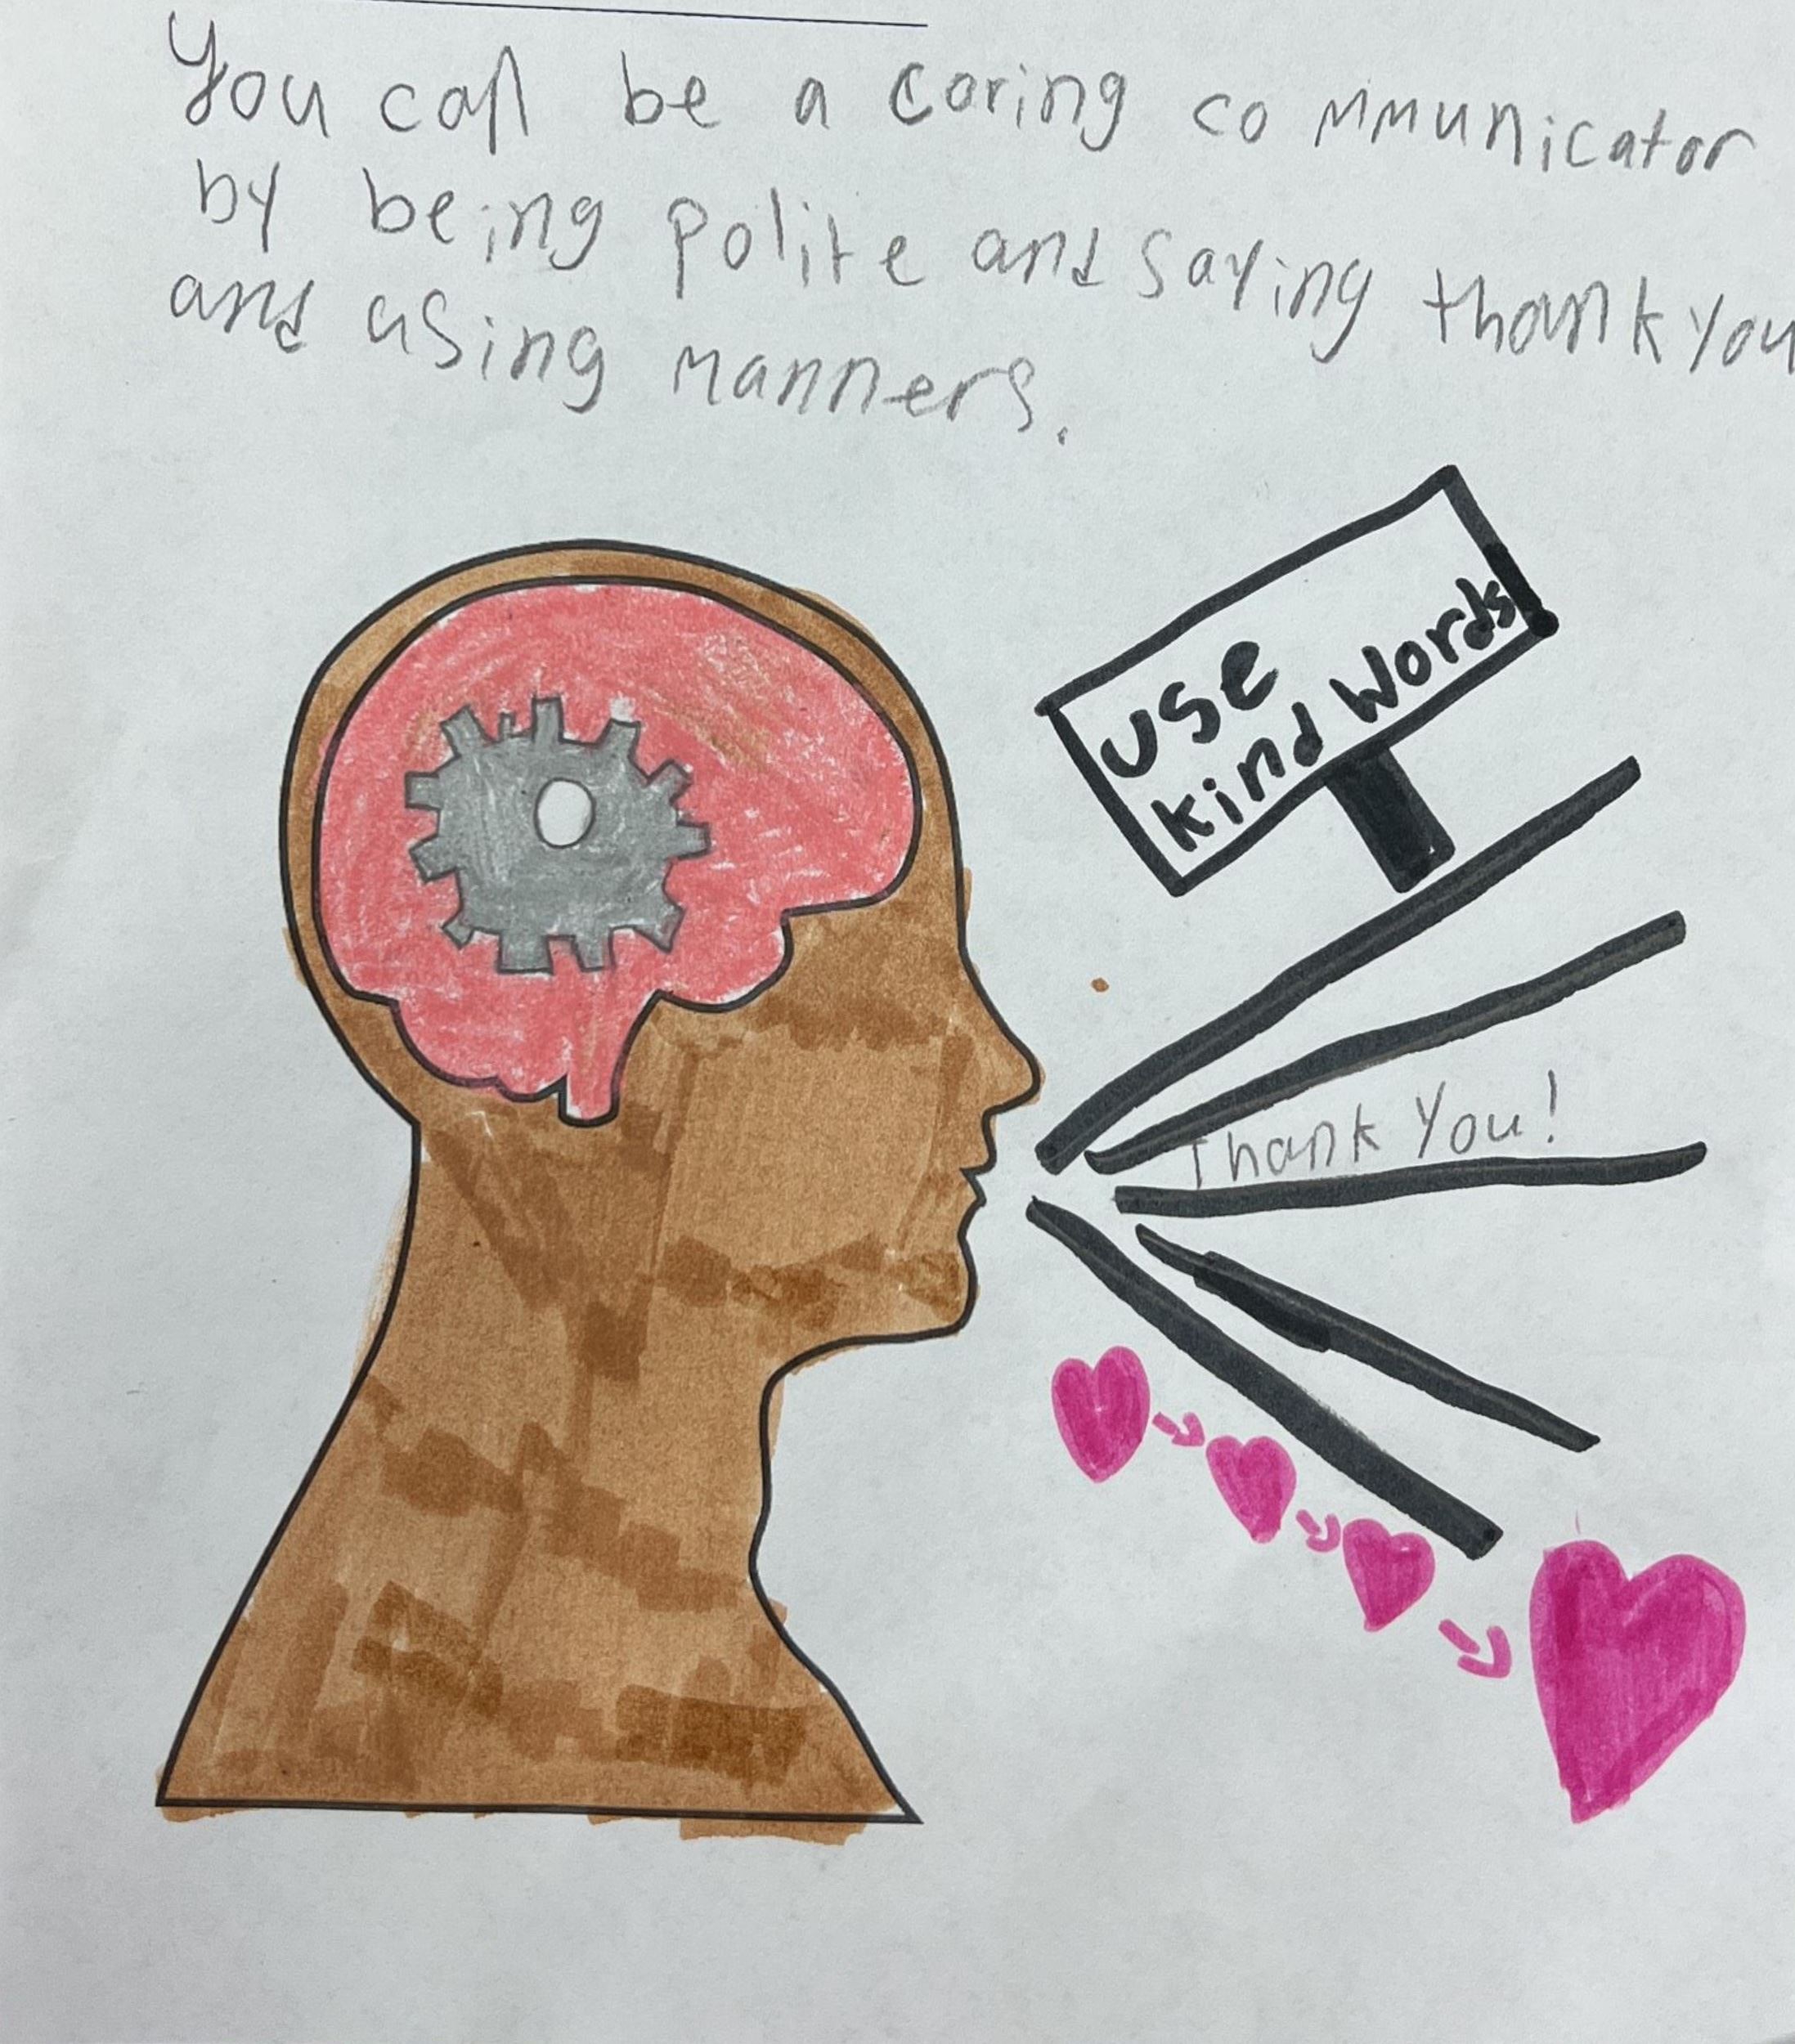 You can be a caring communicator
by being polite and saying thank you
and using manners.
USE
kind words
Thank You!